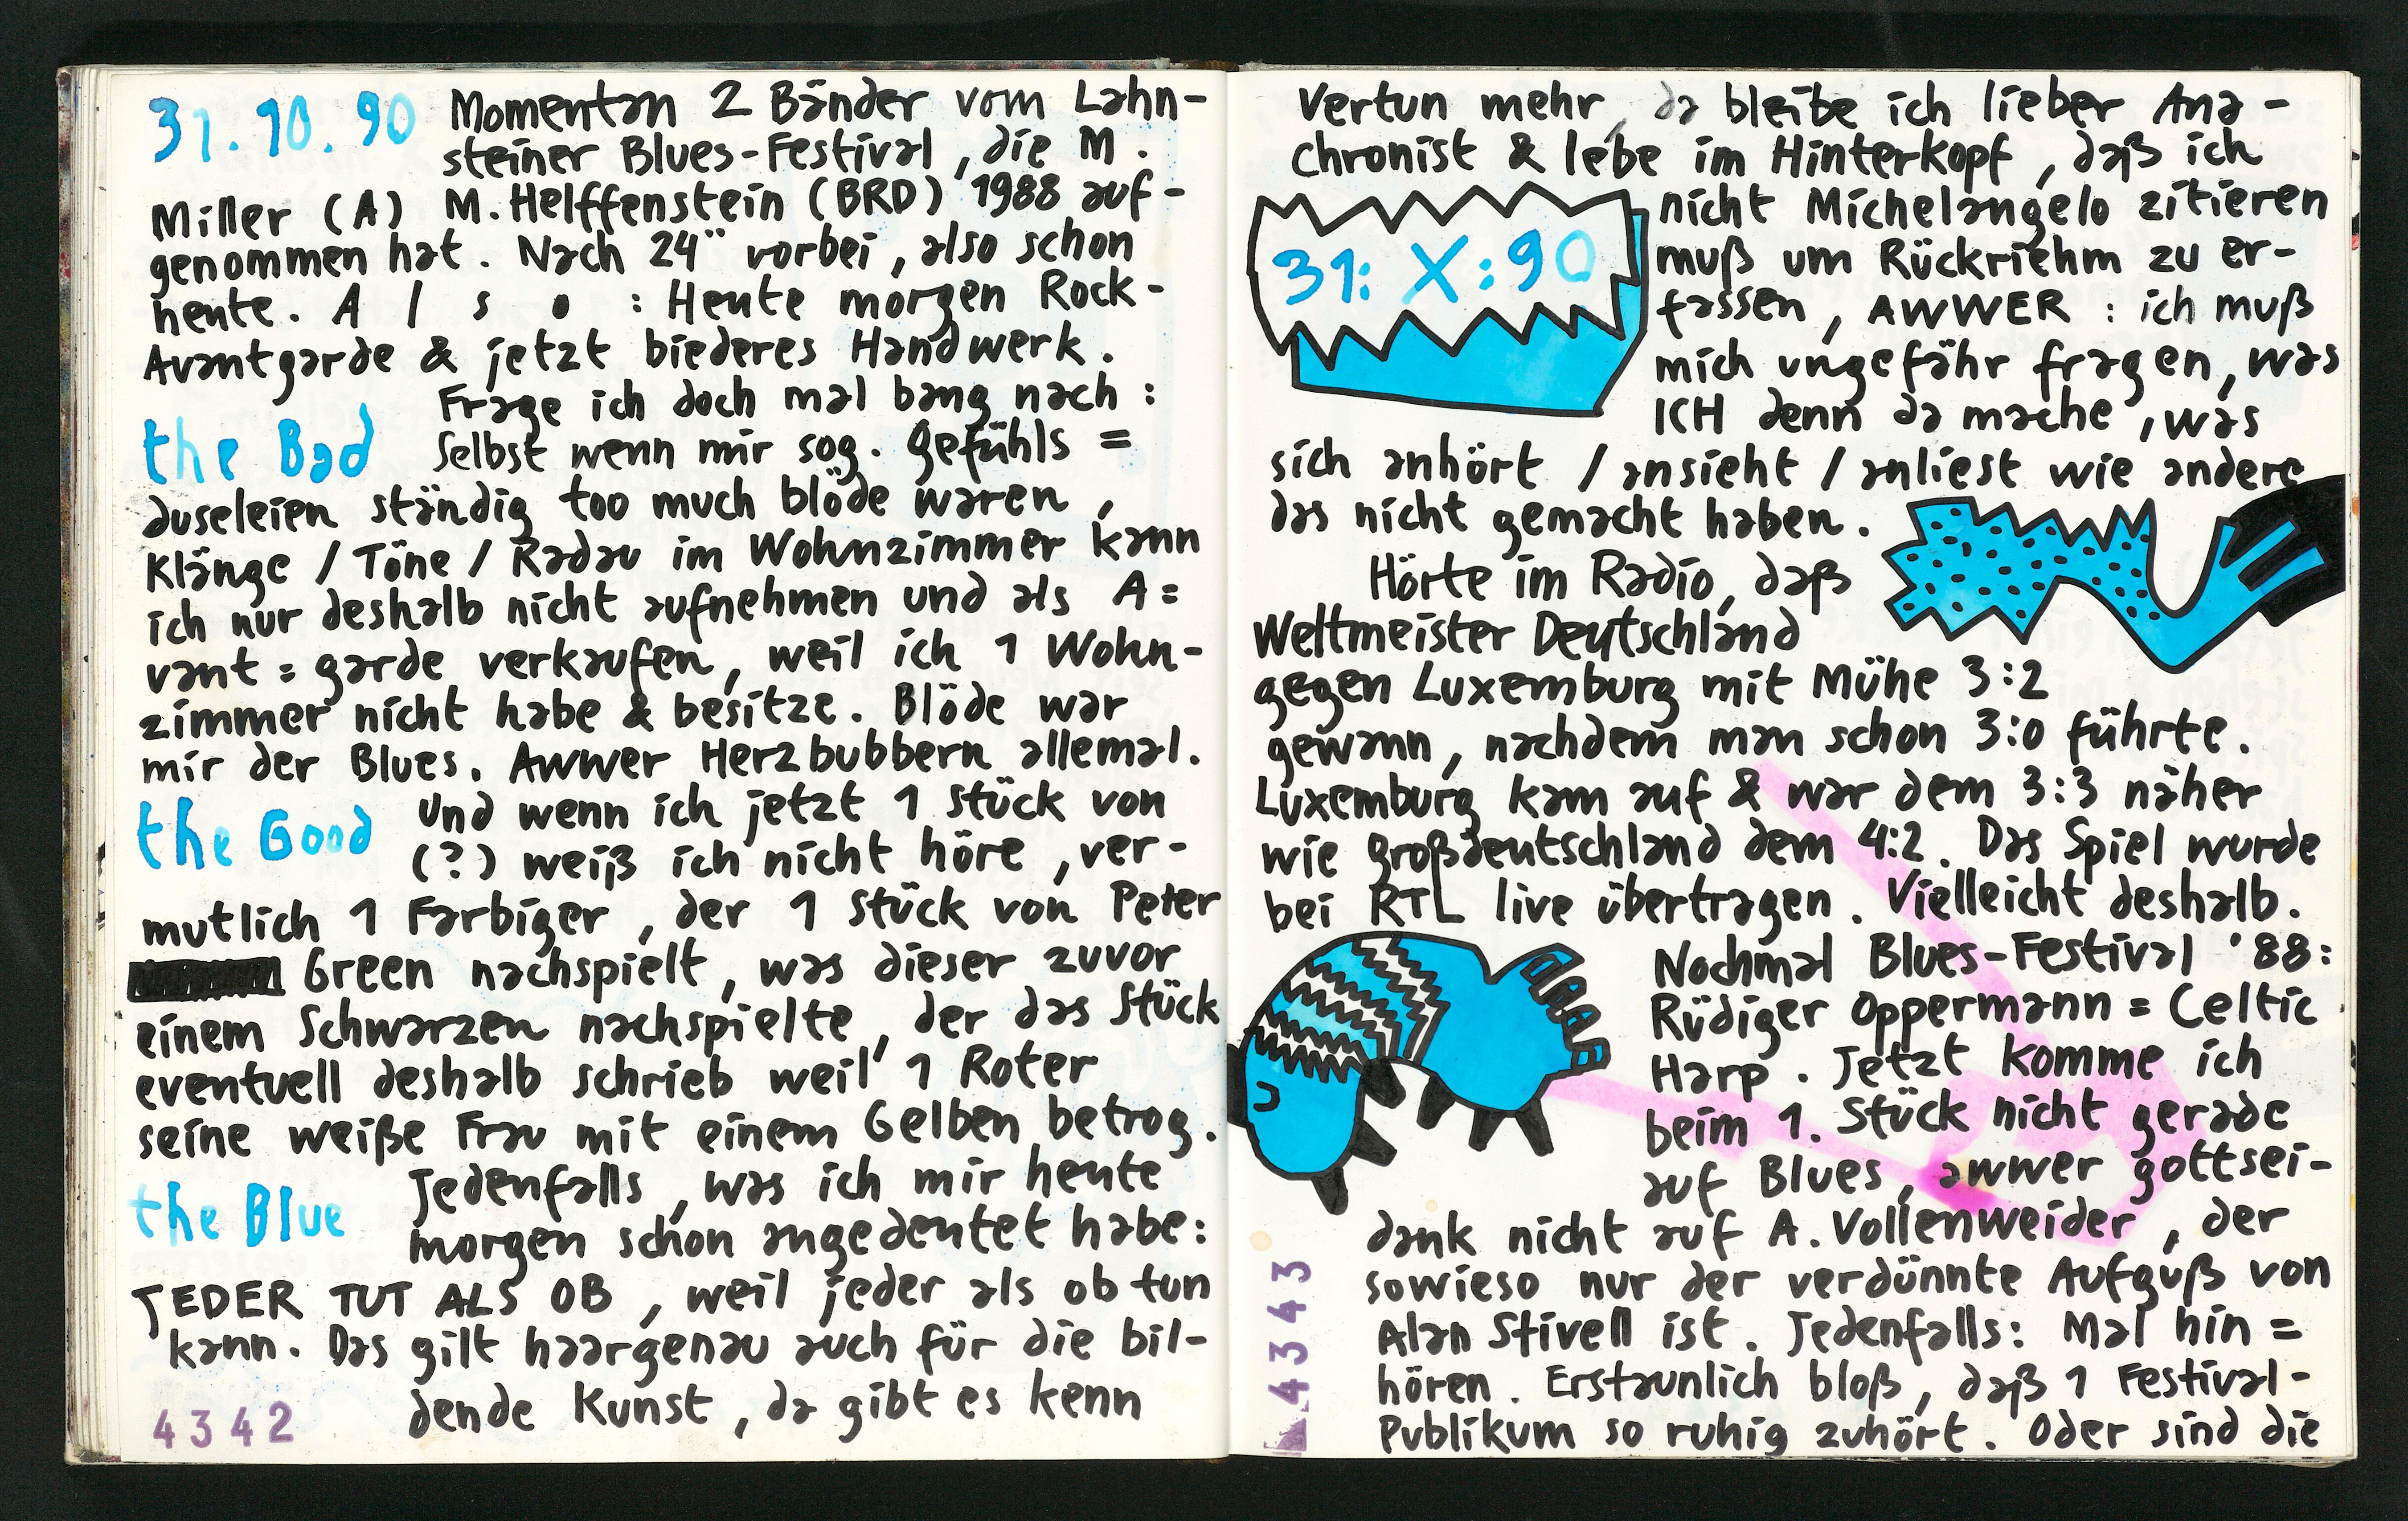 31.10.90 Momentan 2 Bänder vom Lahn-
steiner Blues-Festival, die M.
Miller (A) M. Helffenstein (BRD) 1988 auf-
genommen hat. Nach 24°° vorbei, also schon
heute. A l s o : Heute morgen Rock-
Avantgarde & jetzt biederes Handwerk.
Frage ich doch mal bang nach:
the Bad selbst wenn mir sog. Gefühls=
duseleien ständig too much blöde waren,
Klänge / Töne / Radau im Wohnzimmer kann
ich nur deshalb nicht aufnehmen und als A=
vant=garde verkaufen, weil ich 1 Wohn-
zimmer nicht habe & besitze. Blöde war
mir der Blues. Awwer Herzbubbern allemal.
the Good Und wenn ich jetzt 1 Stück von
(?) weiß ich nicht höre, ver-
mutlich 1 Farbiger, der 1 Stück von Peter
Green nachspielt, was dieser zuvor
einem Schwarzen nachspielte, der das Stück
eventuell deshalb schrieb weil 1 Roter
seine weiße Frau mit einem Gelben betrog.
the Blue Jedenfalls, was ich mir heute
morgen schon angedeutet habe:
JEDER TUT ALS OB, weil jeder als ob tun
kann. Das gilt haargenau auch für die bil-
dende Kunst, da gibt es kenn
4342
Vertun mehr, da bleibe ich lieber Ana-
chronist & lebe im Hinterkopf, daß ich
nicht Michelangelo zitieren
31: X:90
muß um Rückriehm zu er-
fassen, AWWER : ich muß
mich ungefähr fragen, was
ICH denn da mache, was
sich anhört / ansieht / anliest wie andere
das nicht gemacht haben.
Hörte im Radio, daß
Weltmeister Deutschland
gegen Luxemburg mit Mühe 3:2
gewann, nachdem man schon 3:0 führte.
Luxemburg kam auf & war dem 3:3 näher
wie Großdeutschland dem 4:2. Das Spiel wurde
bei RTL live übertragen. Vielleicht deshalb.
Nochmal Blues-Festival '88:
Rüdiger Oppermann = Celtic
Harp. Jetzt komme ich
beim 1. Stück nicht gerade
auf Blues, awwer gottsei-
dank nicht auf A. Vollenweider, der
sowieso nur der verdünnte Aufguß von
Alan Stivell ist. Jedenfalls: Mal hin=
hören. Erstaunlich bloß, daß 1 Festival-
Publikum so ruhig zuhört. Oder sind die
4343